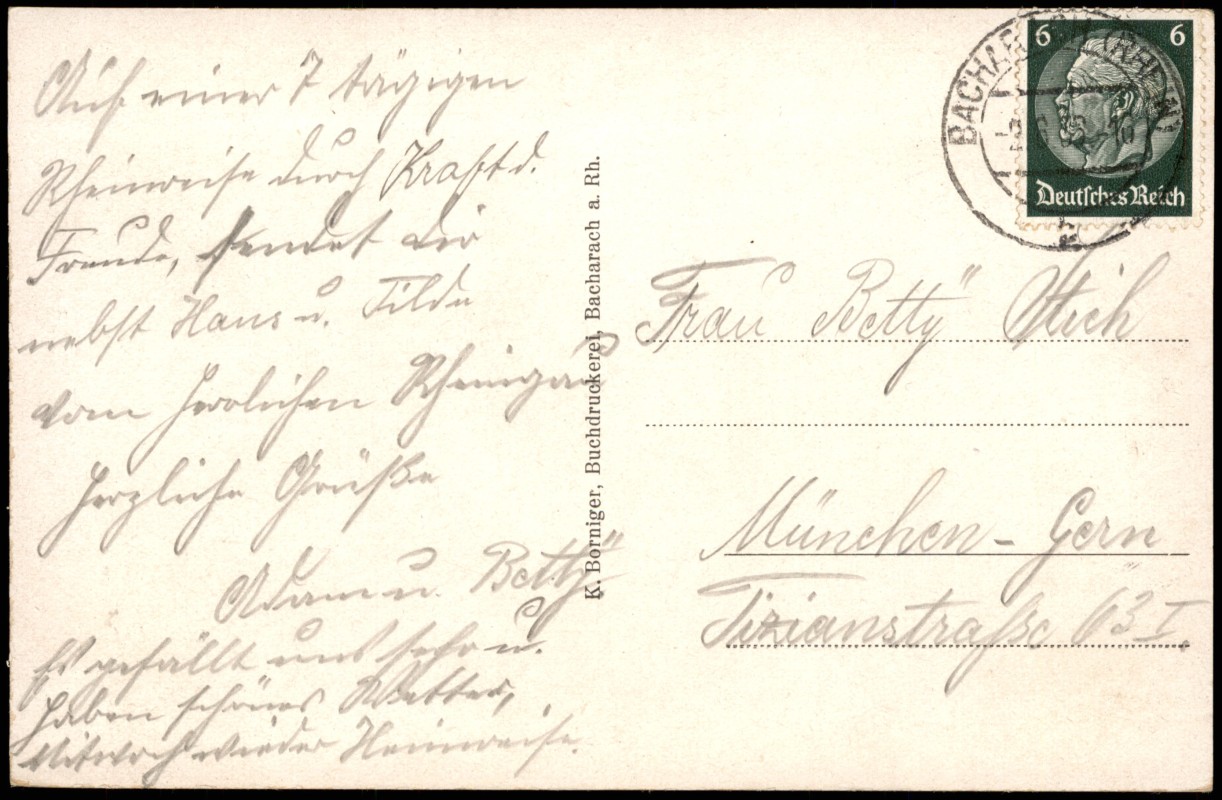 Auf einer 7 tägigen
Rheinreise durch Kraft d.
Freude, sendet dir
nebst Hans u. Tilde
vom herrlichen Rheingau
herzliche Grüße
Adam u. Betty
Es gefällt uns sehr u.
haben schönes Wetter,
Mitwoch wieder Heimreise.
K. Borniger, Buchdruckerei, Bacharach a. Rh.
BACHARACH (RHEIN)
6 6
Deutsches Reich
Frau Betty Stich
München - Gern
Tizianstraße 63 I.